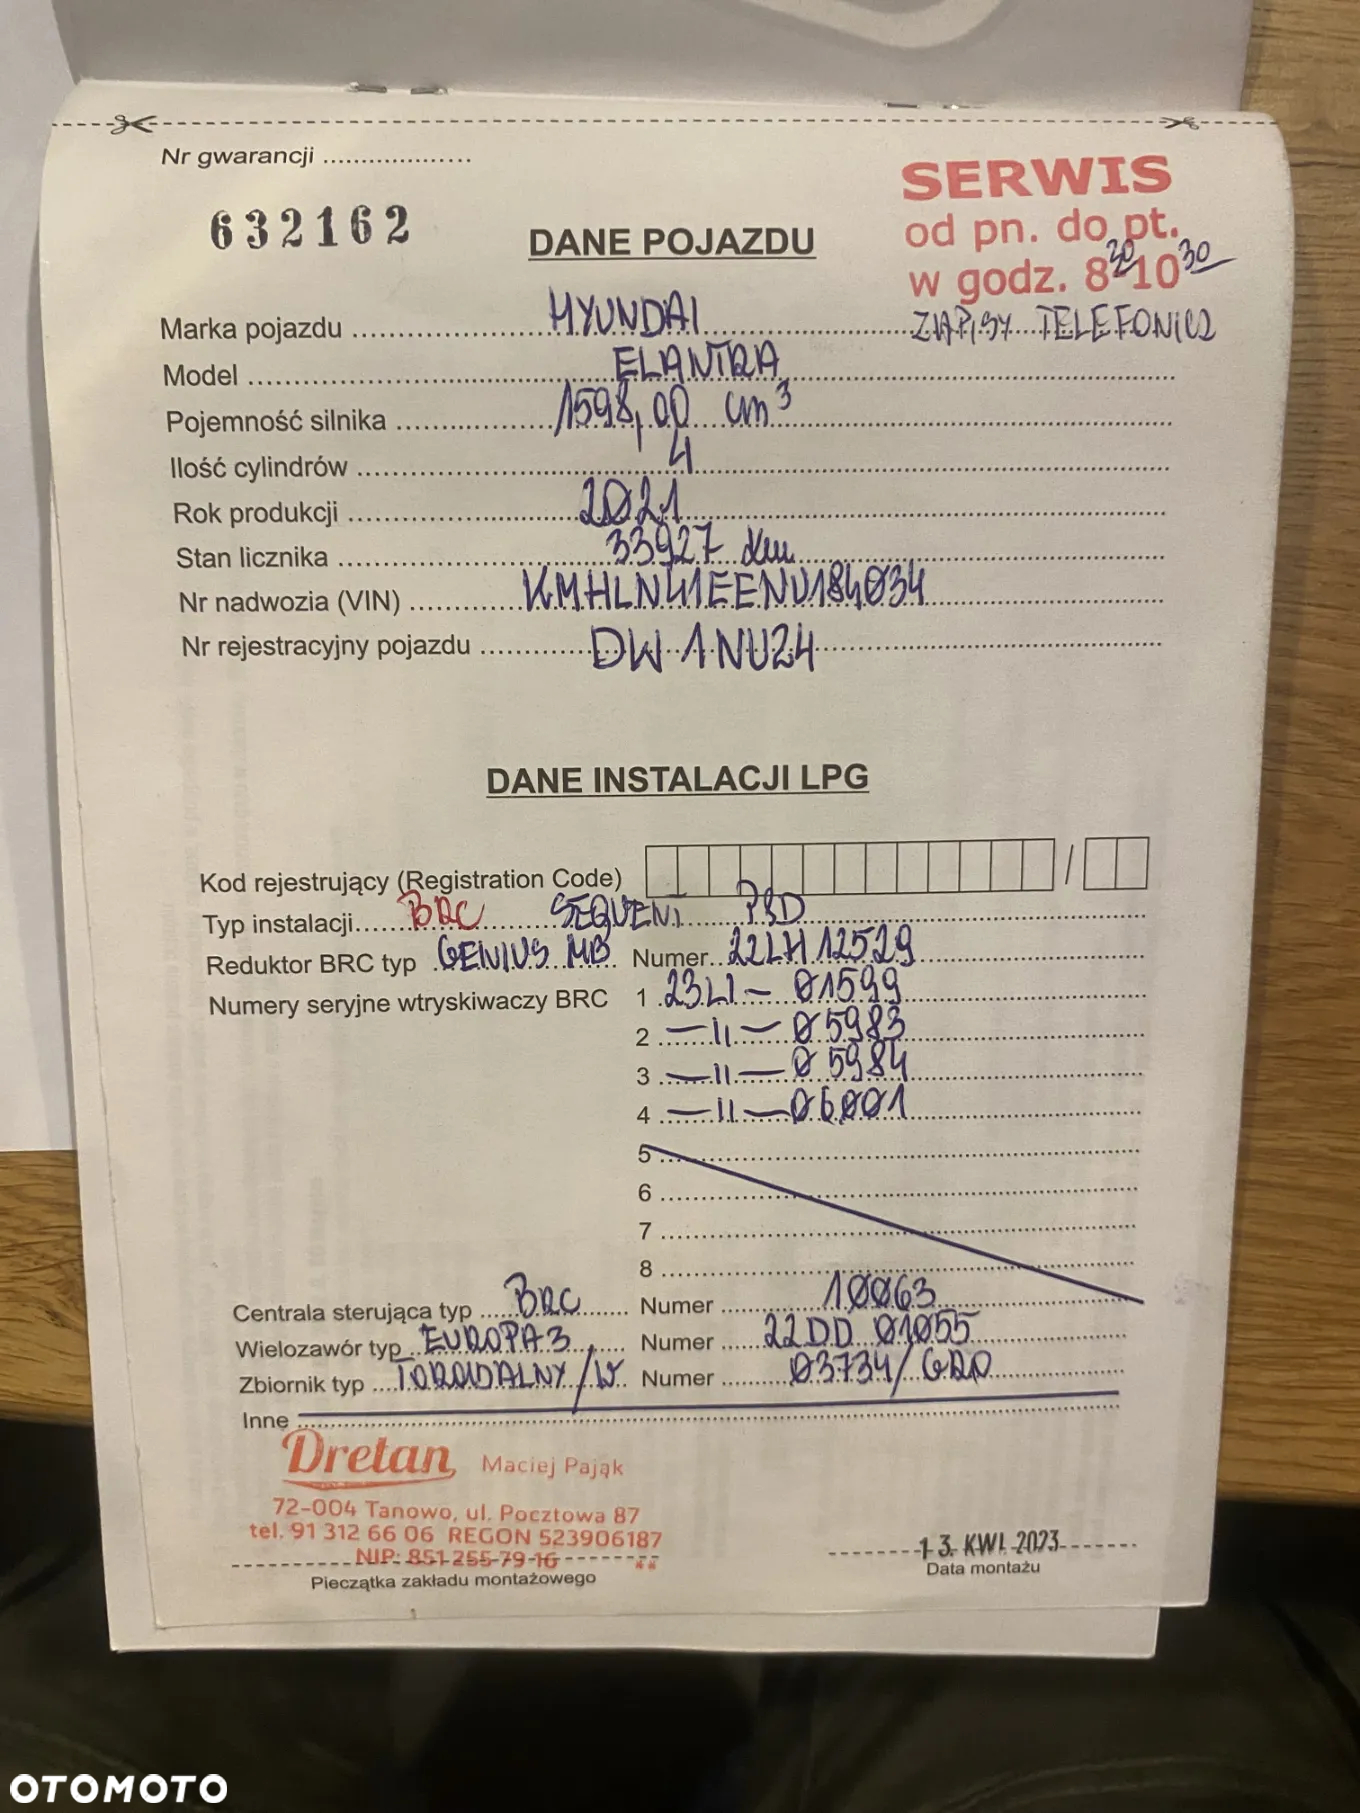 Nr gwarancji ....................
632162
SERWIS
od pn. do pt.
w godz. 8³⁰-10³⁰
ZAPISY TELEFONICZ
DANE POJAZDU
Marka pojazdu HYUNDAI
Model ELANTRA
Pojemność silnika 1598,00 cm³
Ilość cylindrów 4
Rok produkcji 2021
Stan licznika 33927 km
Nr nadwozia (VIN) KMHLN41EENU184034
Nr rejestracyjny pojazdu DW 1NU24
DANE INSTALACJI LPG
Kod rejestrujący (Registration Code) /
Typ instalacji BRC SEQUENT
Reduktor BRC typ GENIUS MB Numer 22LH12529
Numery seryjne wtryskiwaczy BRC 1 23LI - 01599
2 —ıı— 05983
3 —ıı— 05984
4 —ıı— 06001
5
6
7
8
Centrala sterująca typ BRC Numer 10063
Wielozawór typ EUROPA 3 Numer 22DD 01055
Zbiornik typ TOROIDALNY/W Numer 03734/GRD
Inne
Dretan Maciej Pająk
72-004 Tanowo, ul. Pocztowa 87
tel. 91 312 66 06 REGON 523906187
NIP: 851-255-79-16
Pieczątka zakładu montażowego
13. KWI. 2023
Data montażu
OTOMOTO